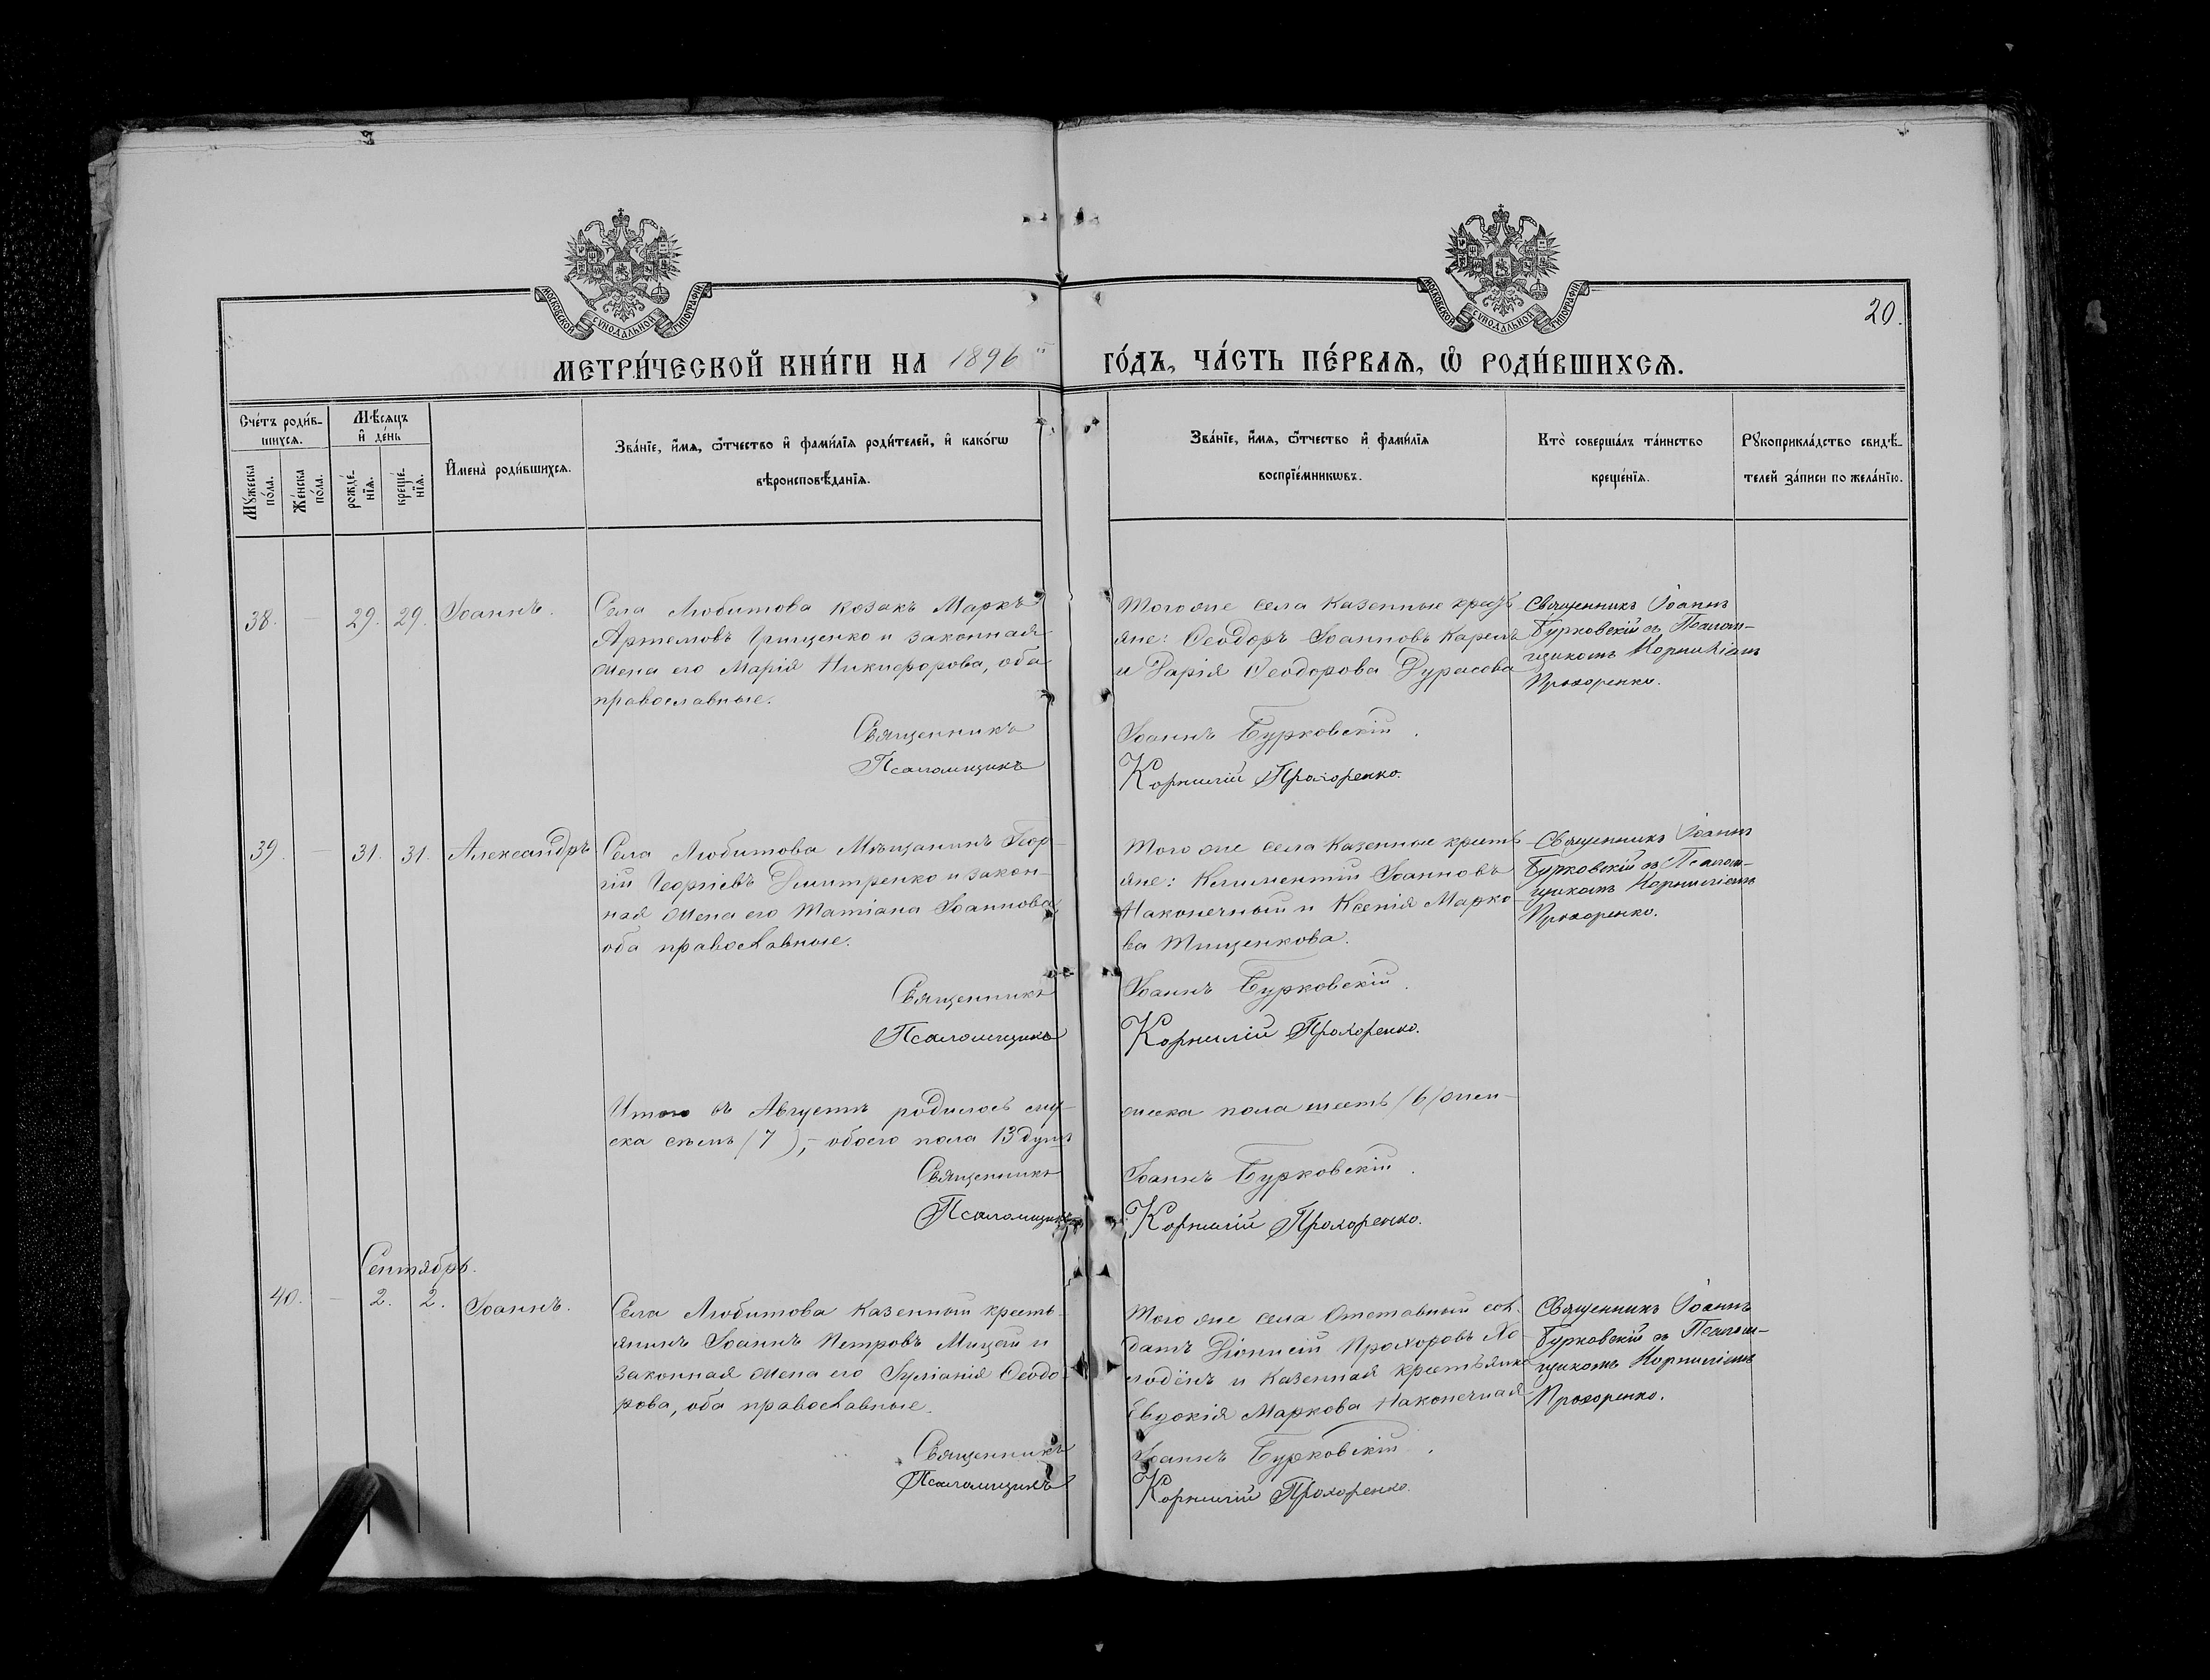 МОСКОВСКОЙ СѴНОДАЛЬНОЙ ТИПОГРАФІИ
МОСКОВСКОЙ СѴНОДАЛЬНОЙ ТИПОГРАФІИ
20.
МЕТРИ́ЧЕСКОЙ КНИ́ГИ НА 1896 ГО́ДЪ, ЧА́СТЬ ПЕ́РВАѦ, Ѡ҆ РОДИ́ВШИХСѦ.
Сче́тъ роди́в-
шихсѧ.
Мꙋ́жеска по́ла.
Же́нска по́ла.
Мѣ́сѧцъ
и҆ де́нь
рожде́-
нїѧ.
креще́-
нїѧ.
И҆мена̀ роди́вшихсѧ.
Зва́нїе, и҆́мѧ, ѻ҆́тчество и҆ фами́лїѧ роди́телей, и҆ како́гѡ
вѣроисповѣ́данїѧ.
Зва́нїе, и҆́мѧ, ѻ҆́тчество и҆ фами́лїѧ
воспрїе́мникѡвъ.
Кто̀ соверша́лъ та́инство
креще́нїѧ.
Рꙋкоприкла́дство свидѣ́-
телей за́писи по жела́нїю.
38. — 29. 29. Іоаннъ.
Села Любитова козакъ Маркъ
Артемовъ Грищенко и законная
жена его Марія Никифорова, оба
православные.
Священникъ
Псаломщикъ
Того же села Казенные кресть
яне: Ѳеодоръ Іоанновъ Карепъ
и Дарія Ѳеодорова Дурасова
Іоаннъ Бурковскій.
Корнилій Прохоренко.
Священникъ Іоаннъ
Бурковскій съ Псалом-
щикомъ Корниліемъ
Прохоренко.
39. — 31. 31. Александръ
Села Любитова Мѣщанинъ Геор-
гій Георгіевъ Дмитренко и закон-
ная жена его Татіана Іоаннова,
оба православные.
Священникъ
Псаломщикъ
Того же села Казенные кресть
яне: Климентій Іоанновъ
Наконечный и Ксенія Марко-
ва Тищенкова.
Іоаннъ Бурковскій.
Корнилій Прохоренко.
Священникъ Іоаннъ
Бурковскій съ Псалом-
щикомъ Корниліемъ
Прохоренко.
Итого въ Августѣ родилось муж-
жеска пола шесть /6/ жен-
ска семь /7/, — обоего пола 13 душъ
Священникъ
Псаломщикъ
Іоаннъ Бурковскій.
Корнилій Прохоренко.
Сентябрь.
40. — 2. 2. Іоаннъ.
Села Любитова Казенный кресть-
янинъ Іоаннъ Петровъ Мицай и
законная жена его Іуліанія Ѳеодо-
рова, оба православные.
Священникъ
Псаломщикъ
Того же села Отставный сол-
датъ Діонисій Прохоровъ Хо-
лодёнъ и Казенная крестьянка
Евдокія Маркова Наконечная
Іоаннъ Бурковскій.
Корнилій Прохоренко.
Священникъ Іоаннъ
Бурковскій съ Псалом-
щикомъ Корниліемъ
Прохоренко.